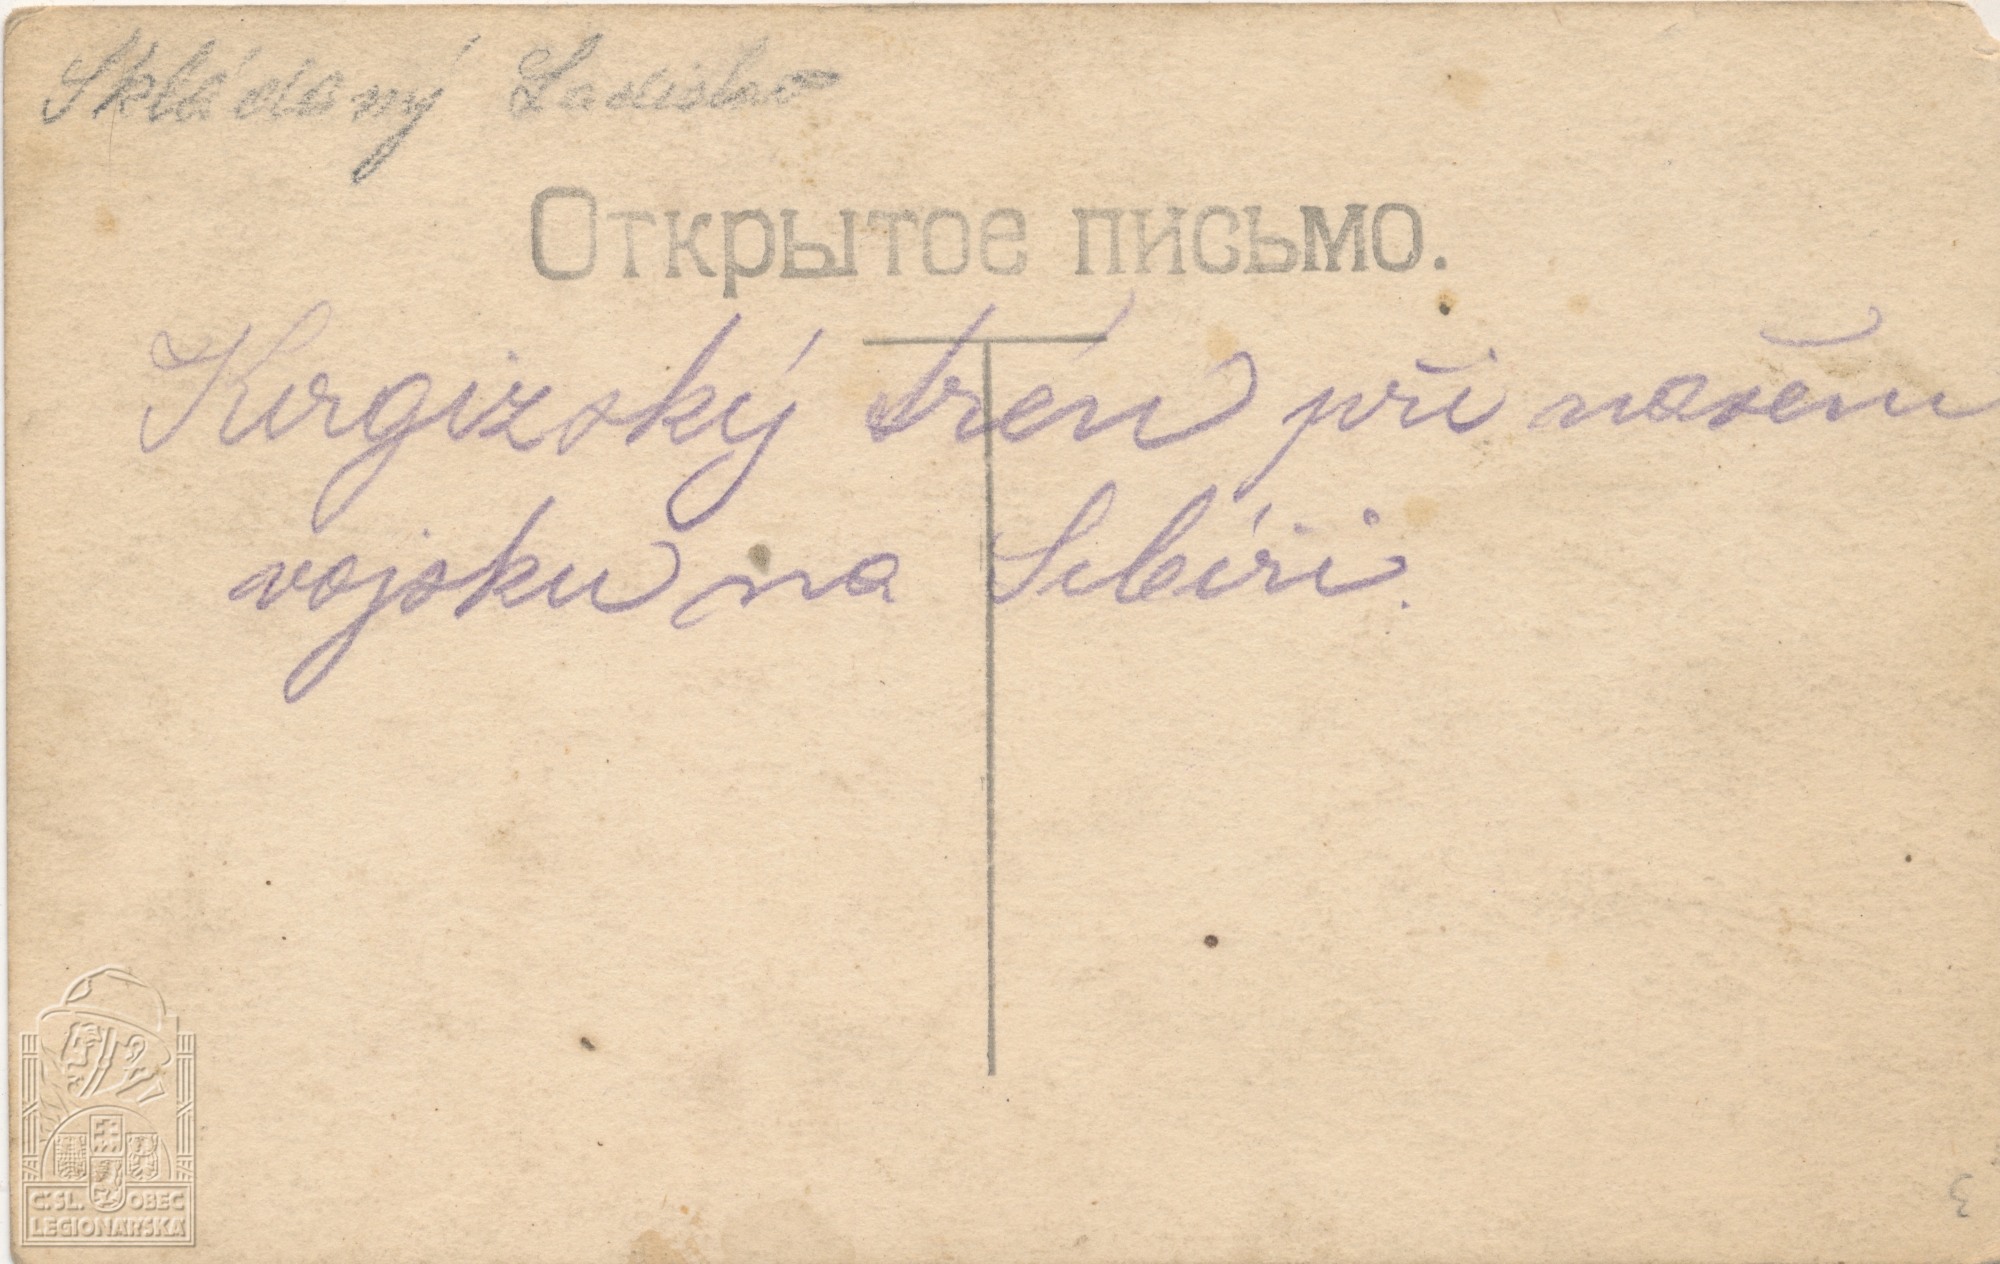 Skládaný Ladislav
Открытое письмо.
Kirgizský trén při našem
vojsku na Sibiři.
Č.SL. OBEC
LEGIONÁŘSKÁ
3